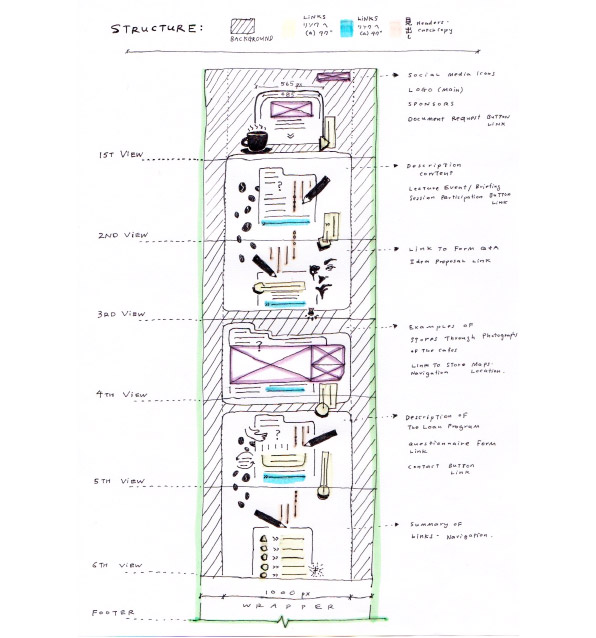 STRUCTURE:
BACKGROUND
LINKS
リンクへ
LINKS
リンクへ
見出し
Headers-
Catchcopy
565 px
485
?
Social media icons
LOGO (main)
SPONSORS
Document Request Button
Link
1ST VIEW
Description
content
Lecture Event/Briefing
Session Participation Button
Link
?
2ND VIEW
Link To Form Q&A
Idea Proposal Link
3RD VIEW
Examples of
Stores Through Photographs
of The Cafes
Link To Store Maps-
Navigation Location.
?
4TH VIEW
Description of
The Loan Program
Questionnaire Form
Link
Contact Button
Link
?
5TH VIEW
Summary of
Links- Navigation.
6TH VIEW
1000 px
WRAPPER
FOOTER